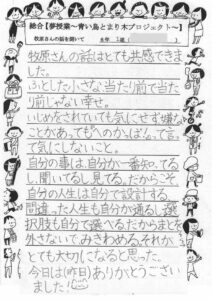 総合【夢授業～青い鳥とまり木プロジェクト～】
牧原さんの話を聞いて
牧原さんの話はとても共感できま
した。
ふとした小さな当たり前で当た
り前じゃない幸せ。
いじめをされていても気にせず嫌な
ことがあっても「へのかっぱ」って言っ
て気にしないこと。
自分の事は、自分が一番知ってる
し、聞いてるし、見てる。だからこそ
自分の人生は自分で設計する。
間違った人生も自分が通るし、選
択肢も自分で選べる。だからまとを
外さないで、みきわめる。それが
とても大切になると思った。
今日は(昨日)ありがとうござい
ました!!